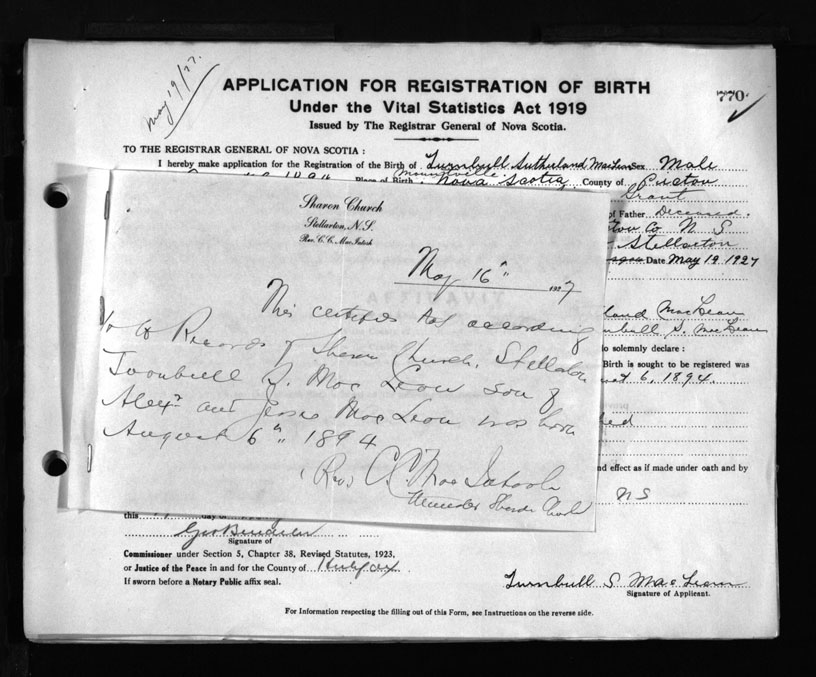 May 19/27.
APPLICATION FOR REGISTRATION OF BIRTH
770
Under the Vital Statistics Act 1919
Issued by The Registrar General of Nova Scotia.
TO THE REGISTRAR GENERAL OF NOVA SCOTIA :
I hereby make application for the Registration of the Birth of Turnbull Sutherland MacLean Sex Male
1894 Place of Birth Nova Scotia County of Pictou
Grant
of Father Deceased.
Co. N. S.
Stellarton
Date May 19 1927
Sharon Church
Stellarton, N.S.
Rev. C. C. MacIntosh
May 16" 1927
This certifies that according
to the Records of Sharon Church, Stellarton
Turnbull S. MacLean son of
Alexr and Jessie MacLean was born
August 6th 1894
(Rev) C C MacIntosh
Minister Sharon Church
land MacLean
nbull S. MacLean
o solemnly declare :
Birth is sought to be registered was
6, 1894.
nd effect as if made under oath and by
NS
this day of
Signature of
Commissioner under Section 5, Chapter 38, Revised Statutes, 1923,
or Justice of the Peace in and for the County of Halifax
If sworn before a Notary Public affix seal.
Turnbull S MacLean
Signature of Applicant.
For Information respecting the filling out of this Form, see Instructions on the reverse side.